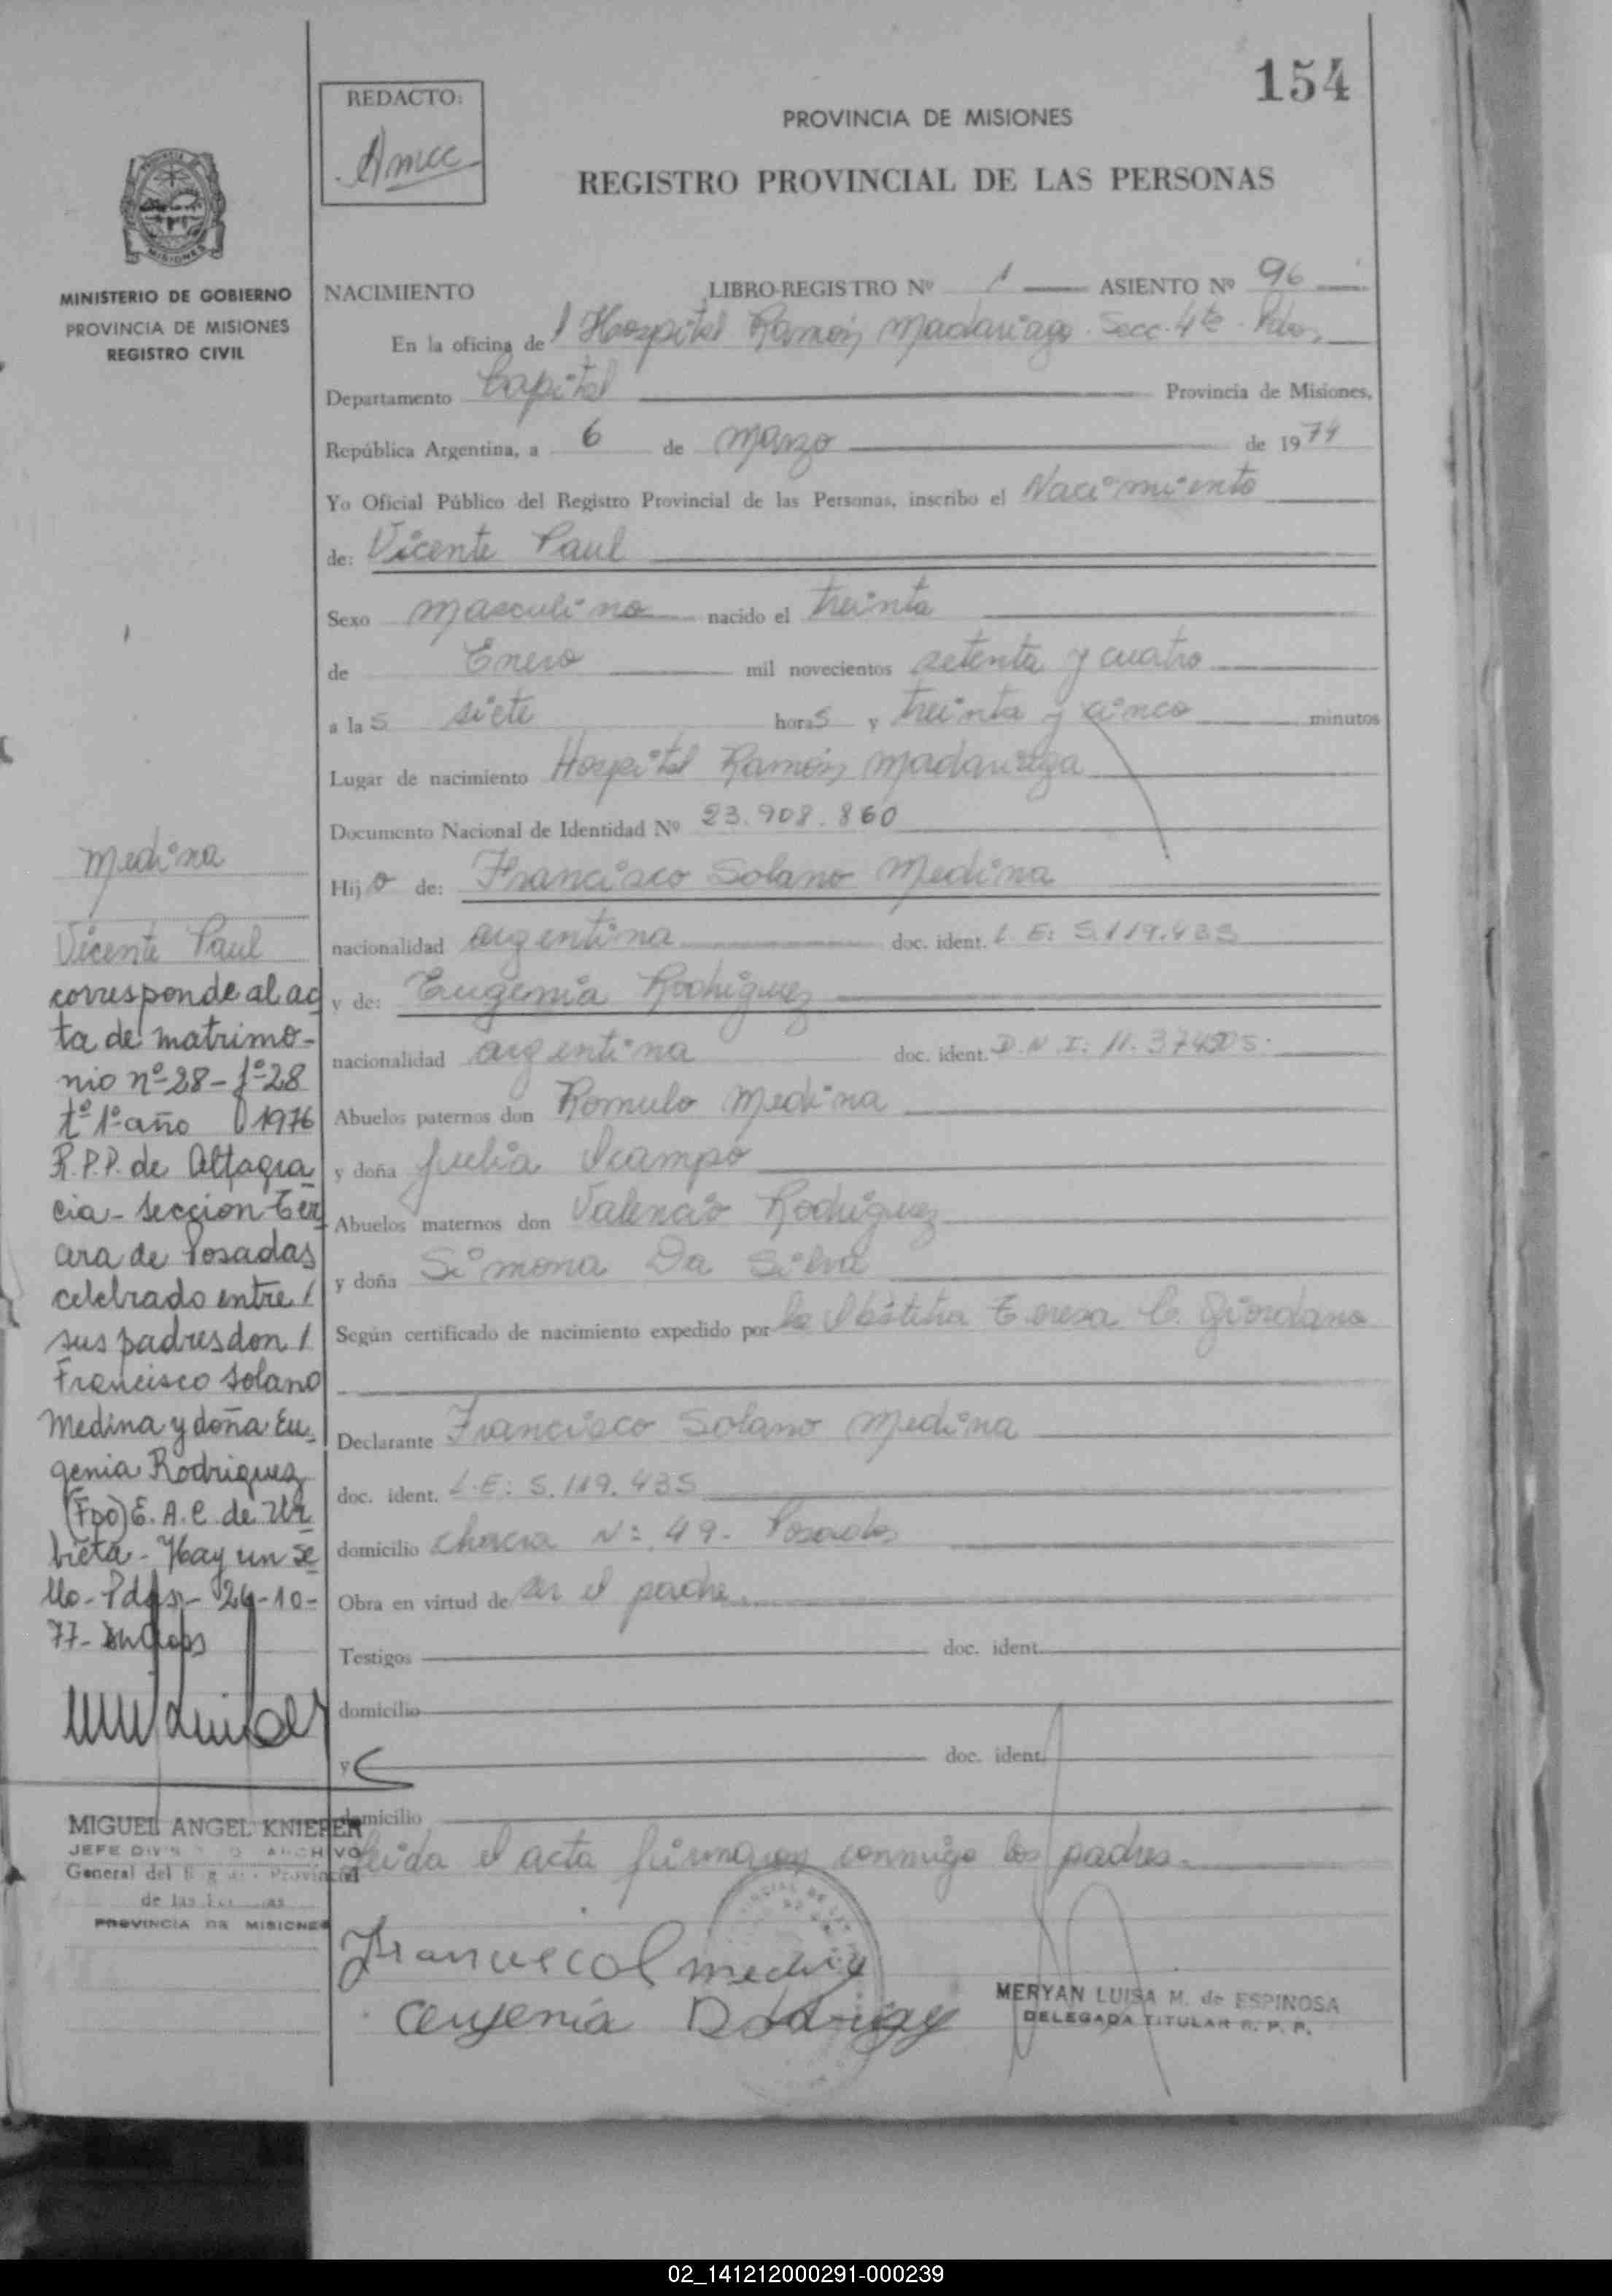 154
REDACTO:
PROVINCIA DE MISIONES
REGISTRO PROVINCIAL DE LAS PERSONAS
MINISTERIO DE GOBIERNO
PROVINCIA DE MISIONES
REGISTRO CIVIL
NACIMIENTO LIBRO-REGISTRO Nº 1 ASIENTO Nº 96
En la oficina del Hospital Ramón Madariaga. Secc. 4ta. Pdas,
Departamento Capital Provincia de Misiones,
República Argentina, a 6 de Marzo de 1974
Yo Oficial Público del Registro Provincial de las Personas, inscribo el Nacimiento
de: Vicente Paul
Sexo Masculino nacido el treinta
de Enero mil novecientos setenta y cuatro
a las siete horas y treinta y cinco minutos
Lugar de nacimiento Hospital Ramón Madariaga
Documento Nacional de Identidad Nº 23.908.860
Hijo de: Francisco Solano Medina
nacionalidad argentina doc. ident. L.E: 5.119.435
y de: Eugenia Rodriguez
nacionalidad argentina doc. ident. D.N.I:
Abuelos paternos don Romulo Medina
y doña Julia Ocampo
Abuelos maternos don Valencio Rodriguez
y doña Simona Da Silva
Según certificado de nacimiento expedido por la Obstetra Teresa C. Giordano
Declarante Francisco Solano Medina
doc. ident. L.E: 5.119.435
domicilio chacra Nº: 49. Posadas
Obra en virtud de ser el padre.
Testigos doc. ident.
domicilio
y doc. ident.
domicilio
leida el acta firmaron conmigo los padres.
Medina
Vicente Paul
corresponde al ac
ta de matrimo-
nio nº 28 - fº 28
tº 1º año 1976
R.P.P. de Altagra
cia - Seccion Ter
cera de Posadas
celebrado entre /
sus padres don /
Francisco Solano
Medina y doña Eu-
genia Rodriguez
(Fdo) E.A.C. de Ur
bieta - Hay un se
llo - Pdas - 24-10-
77-
MIGUEL ANGEL KNIEPER
JEFE ARCHIVO
General del Provincial
de las
PROVINCIA DE MISIONES
Eugenia
MERYAN LUISA M. de ESPINOSA
DELEGADA TITULAR R. P. P.
02_141212000291-000239